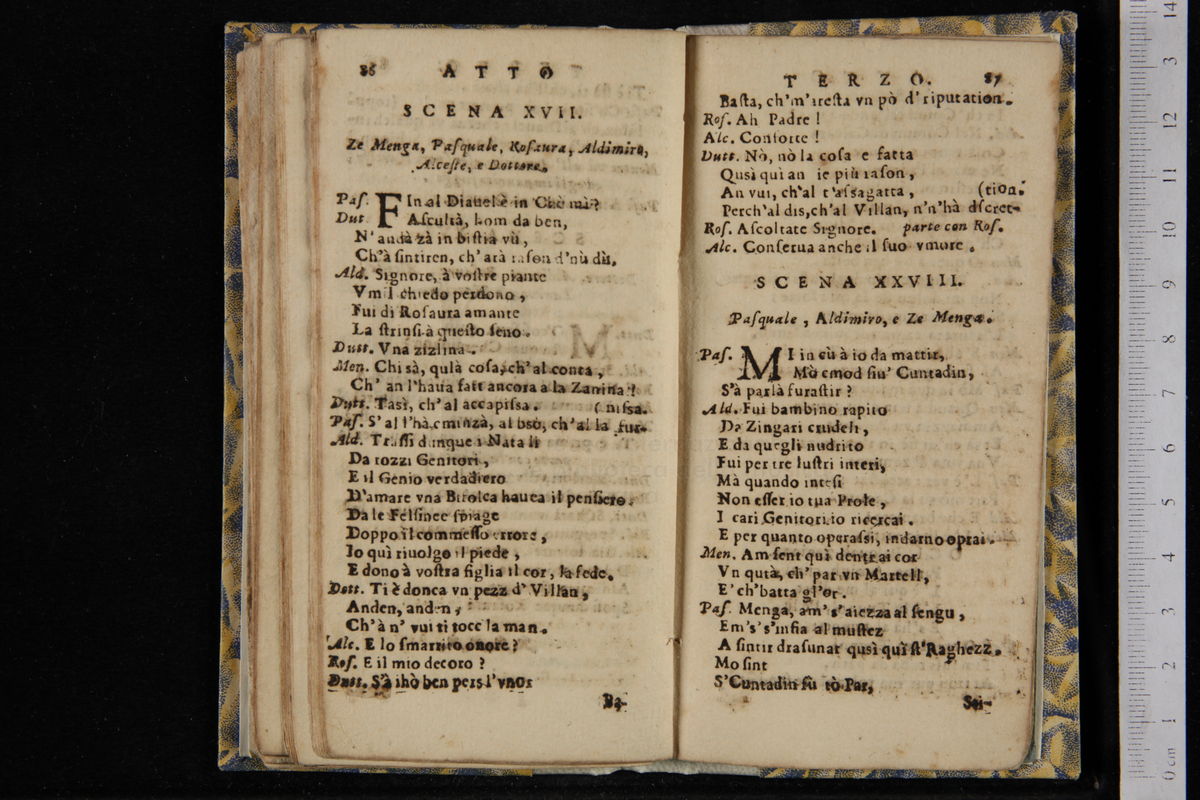 86 ATTO
SCENA XVII.
Ze Menga, Pasquale, Rosaura, Aldimiro,
Alceste, e Dottore.
Pas. FIn al Diauel è in Chè mi?
Dut Ascultà, hom da ben,
N'andà zà in bistia vù,
Ch'à sintiren, ch'arà rason d'nù dù.
Ald. Signore, à vostre piante
Vmil chiedo perdono,
Fui di Rosaura amante
La strinsi à questo seno.
Dutt. Vna zizlina.
Men. Chi sà, qulà cosa, ch'al conta,
Ch' an l'haua fatt ancora a la Zanina?
Dutt. Tasì, ch'al accapissa. (nissa.
Pas. S'al l'hà cminzà, al bsò, ch'al la fur-
Ald. Trassi dunque i Natali
Da rozzi Genitori,
E il Genio verdadiero
D'amare vna Bifolca hauea il pensiero.
Da le Felsinee spiage
Doppo il commesso errore,
Io quì riuolgo il piede,
E dono à vostra figlia il cor, la fede.
Dott. Ti è donca vn pezz d'Villan,
Anden, anden,
Ch'à n' vui ti tocc la man.
Alc. E lo smarrito onore?
Ros. E il mio decoro?
Dutt. S'à ihò ben pers l'vnor
Ba-
TERZO. 87
Basta, ch'm'iresta vn pò d'riputation.
Ros. Ah Padre!
Alc. Consorte!
Dutt. Nò, nò la cosa e fatta
Qusì qui an ie più rason,
An vui, ch'al t'assagatta, (tion.
Perch'al dis, ch'al Villan, n'n'hà dscret-
Ros. Ascoltate Signore. parte con Ros.
Alc. Conserua anche il suo vmore.
SCENA XXVIII.
Pasquale, Aldimiro, e Ze Menga.
Pas. MI in cù à io da mattir,
Mò cmod siu' Cuntadin,
S'à parlà furastir?
Ald. Fui bambino rapito
Da Zingari crudeli,
E da quegli nudrito
Fui per tre lustri interi,
Mà quando intesi
Non esser io tua Prole,
I cari Genitori io ricercai.
E per quanto operassi, indarno oprai.
Men. Am sent quì dentr ai cor
Vn qutà, ch'par vn Martell,
E' ch'batta gl'or.
Pas. Menga, am's'aiezza al sengu,
Em's's'infia al mustez
A sintir drasunar qusì quì st'Raghezz.
Mo sint
S'Cuntadin fù tò Par,
Sei-